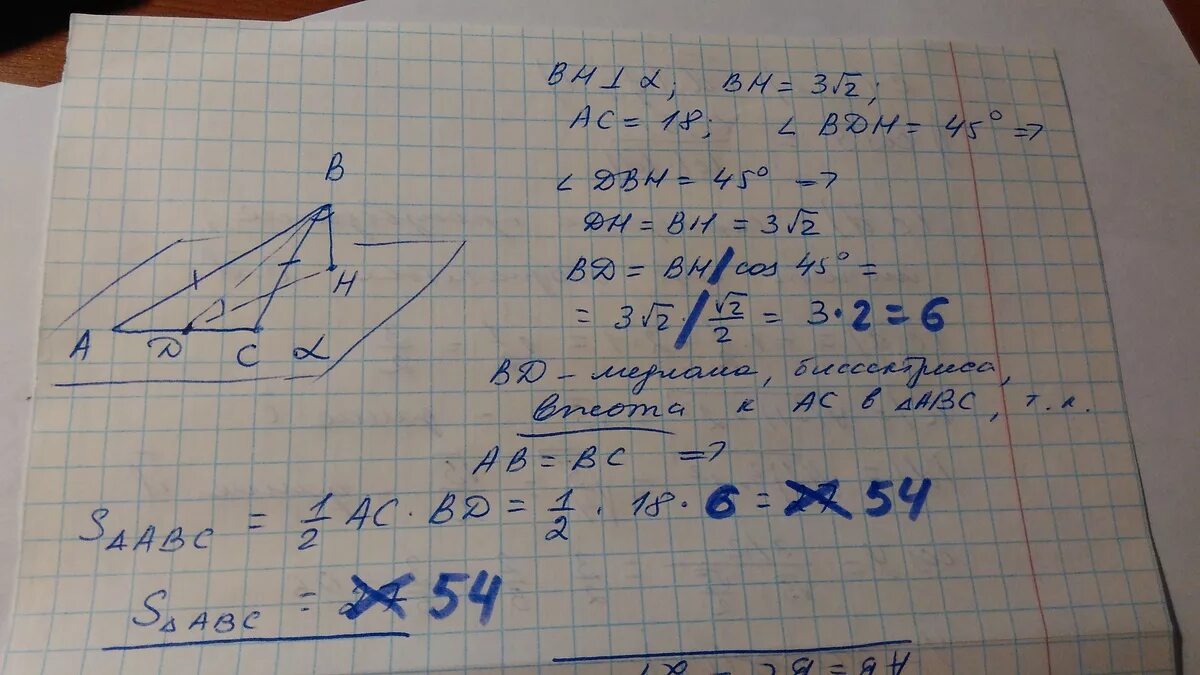 BH ⊥ α; BH = 3√2;
AC = 18; ∠ BDH = 45° =>
∠ DBH = 45° =>
DH = BH = 3√2
BD = BH / cos 45° =
= 3√2 / √2/2 = 3·2 = 6
BD – медиана, биссектриса,
высота к AC в △ABC, т.к.
AB = BC =>
S△ABC = 1/2 AC · BD = 1/2 · 18 · 6 = 54
S△ABC = 54
B
H
A D C α